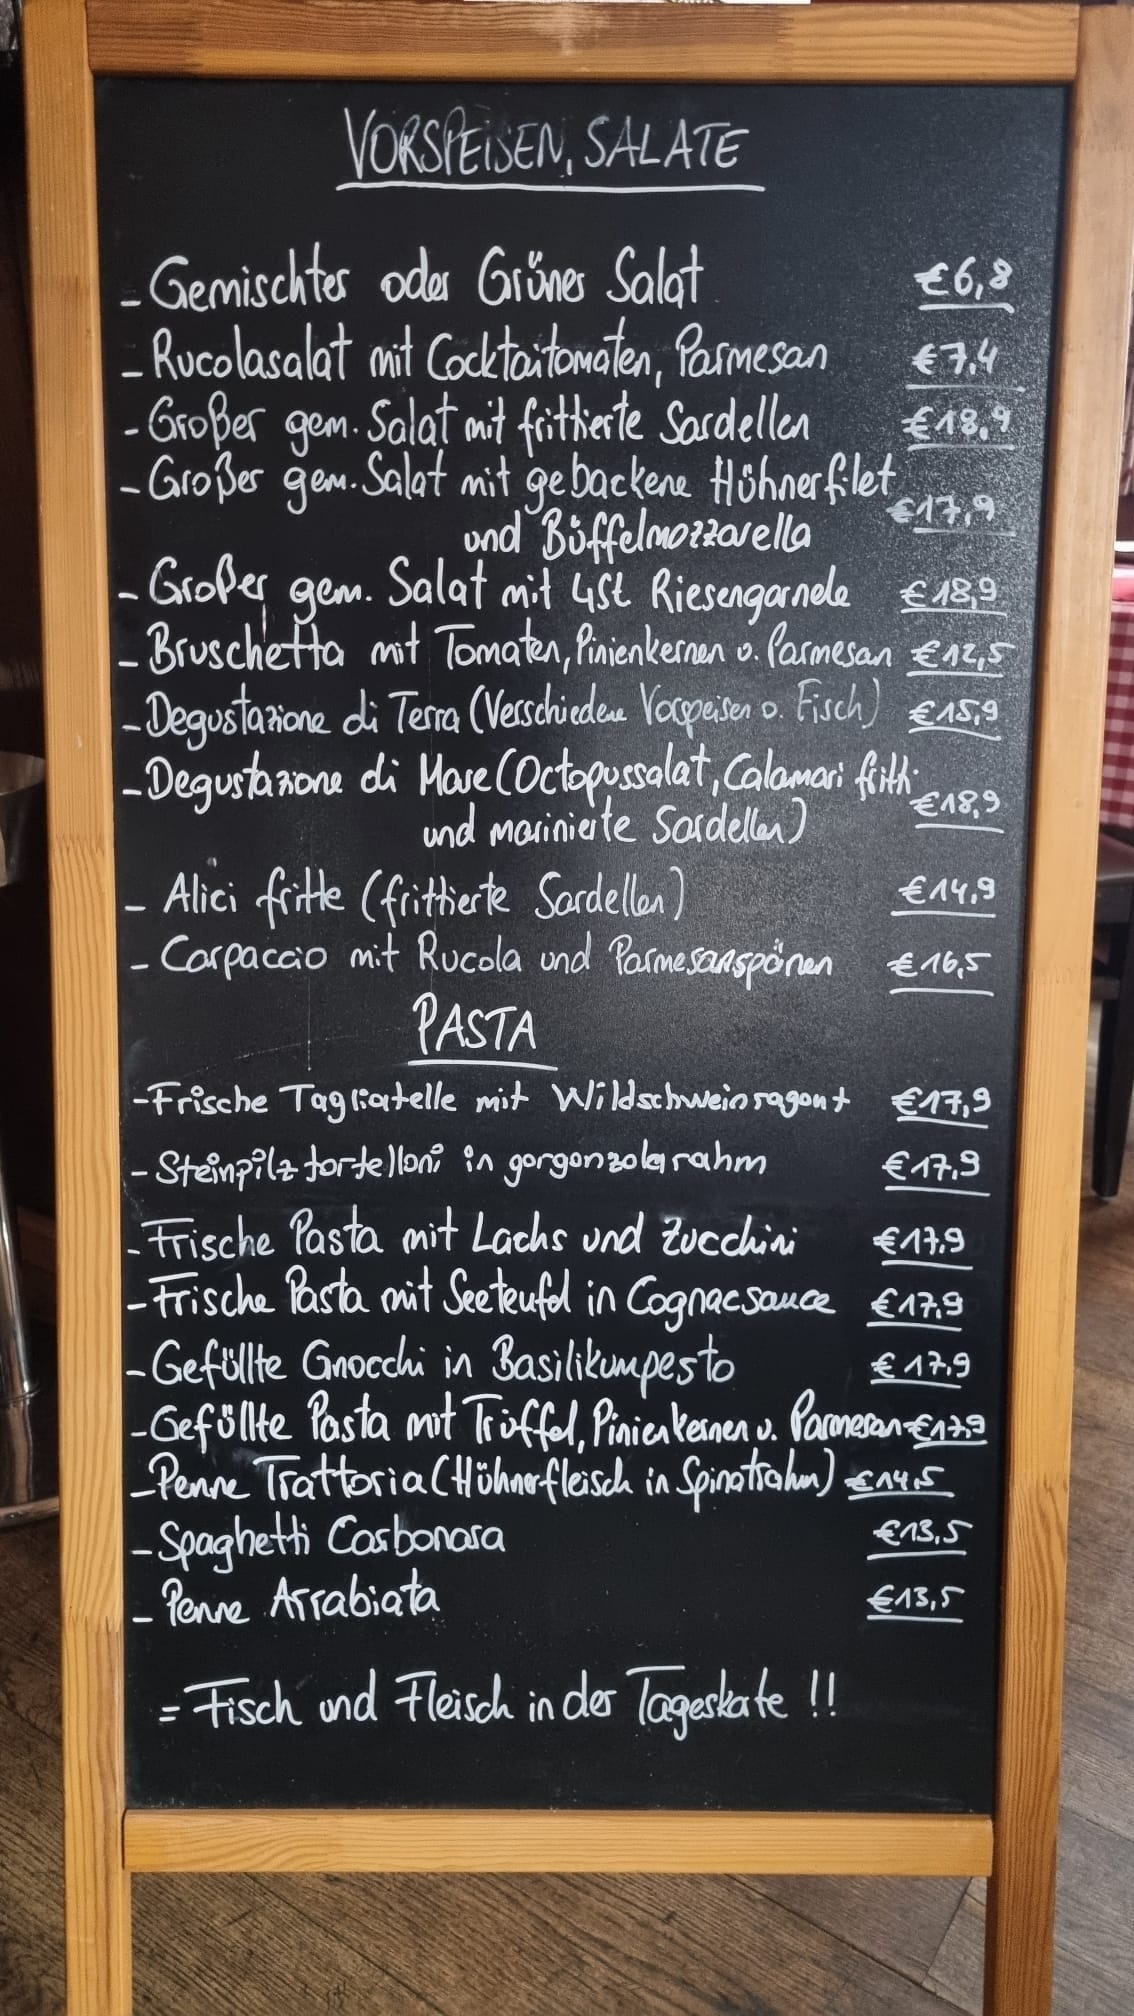 VORSPEISEN, SALATE
- Gemischter oder Grüner Salat €6,8
- Rucolasalat mit Cocktaitomaten, Parmesan €7,4
- Großer gem. Salat mit frittierte Sardellen €18,9
- Großer gem. Salat mit gebackene Hühnerfilet
und Büffelmozzarella €17,9
- Großer gem. Salat mit 4St. Riesengarnele €18,9
- Bruschetta mit Tomaten, Pinienkernen u. Parmesan €12,5
- Degustazione di Terra (Verschiedene Vorspeisen o. Fisch) €15,9
- Degustazione di Mare (Octopussalat, Calamari fritti
und marinierte Sardellen) €18,9
- Alici fritte (frittierte Sardellen) €14,9
- Carpaccio mit Rucola und Parmesanspänen €16,5
PASTA
- Frische Tagliatelle mit Wildschweinragout €17,9
- Steinpilztortelloni in gorgonzolarahm €17,9
- Frische Pasta mit Lachs und Zucchini €17,9
- Frische Pasta mit Seeteufel in Cognacsauce €17,9
- Gefüllte Gnocchi in Basilikumpesto €17,9
- Gefüllte Pasta mit Trüffel, Pinienkernen u. Parmesan €17,9
- Penne Trattoria (Hühnerfleisch in Spinatrahm) €14,5
- Spaghetti Carbonara €13,5
- Penne Arrabiata €13,5
= Fisch und Fleisch in der Tageskate !!